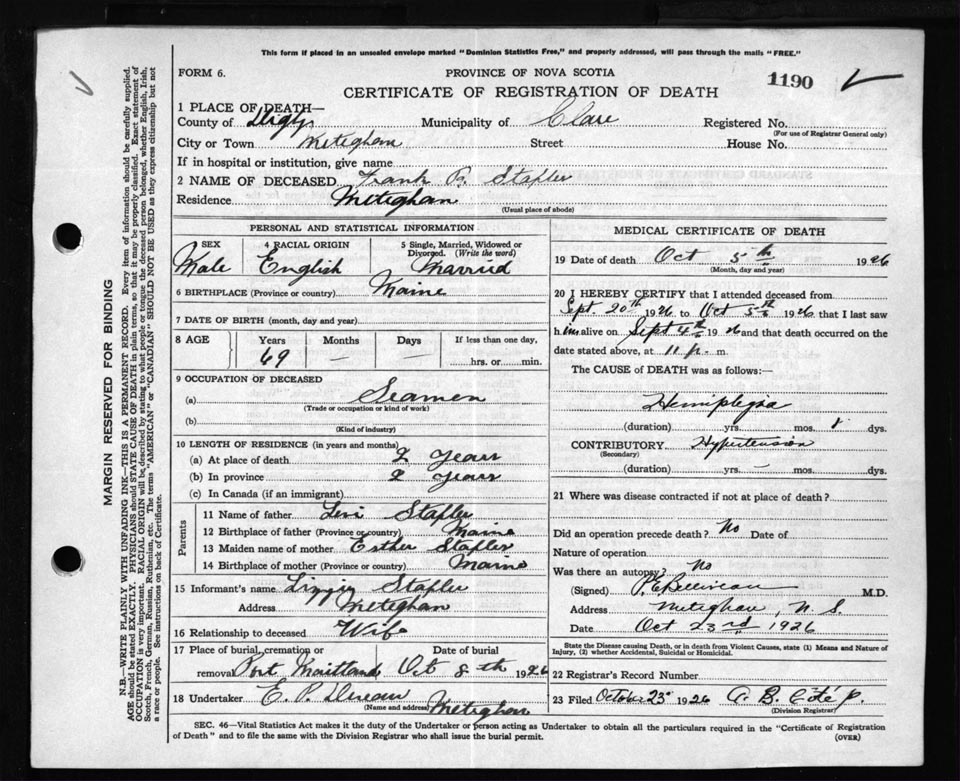 This form if placed in an unsealed envelope marked "Dominion Statistics Free," and properly addressed, will pass through the mails "FREE."
FORM 6.
PROVINCE OF NOVA SCOTIA
1190
CERTIFICATE OF REGISTRATION OF DEATH
1 PLACE OF DEATH—
County of Digby Municipality of Clare Registered No.
(For use of Registrar General only)
City or Town Meteghan Street House No.
If in hospital or institution, give name
2 NAME OF DECEASED Frank B. Stapler
Residence Meteghan
(Usual place of abode)
PERSONAL AND STATISTICAL INFORMATION
3 SEX 4 RACIAL ORIGIN 5 Single, Married, Widowed or Divorced. (Write the word)
Male English Married
6 BIRTHPLACE (Province or country) Maine
7 DATE OF BIRTH (month, day and year)
8 AGE Years Months Days If less than one day,
69 — — hrs. or min.
9 OCCUPATION OF DECEASED
(a) Seamen
(Trade or occupation or kind of work)
(b)
(Kind of industry)
10 LENGTH OF RESIDENCE (in years and months)
(a) At place of death 2 years
(b) In province 2 years
(c) In Canada (if an immigrant)
Parents
11 Name of father Levi Stapler
12 Birthplace of father (Province or country) Maine
13 Maiden name of mother Esther Stapler
14 Birthplace of mother (Province or country) Maine
15 Informant's name Lizzie Stapler
Address Meteghan
16 Relationship to deceased Wife
17 Place of burial, cremation or Date of burial
removal Port Maitland Oct 8th 1926
18 Undertaker E. P. Deveau
(Name and address) Meteghan
MEDICAL CERTIFICATE OF DEATH
19 Date of death Oct 5th 1926
(Month, day and year)
20 I HEREBY CERTIFY that I attended deceased from
Sept. 20th 1926 to Oct 5th 1926 that I last saw
him alive on Sept 4th 1926 and that death occurred on the
date stated above, at 11 p. m.
The CAUSE of DEATH was as follows:—
Hemiplegia
(duration) yrs. mos. dys.
CONTRIBUTORY Hypertension
(Secondary)
(duration) yrs. — mos. dys.
21 Where was disease contracted if not at place of death?
Did an operation precede death? No Date of
Nature of operation
Was there an autopsy? No
(Signed) P. E. Belliveau M.D.
Address Meteghan, N. S.
Date Oct 23rd 1926
State the Disease causing Death, or in death from Violent Causes, state (1) Means and Nature of
Injury, (2) whether Accidental, Suicidal or Homicidal.
22 Registrar's Record Number
23 Filed October 25 1926
(Division Registrar)
SEC. 46—Vital Statistics Act makes it the duty of the Undertaker or person acting as Undertaker to obtain all the particulars required in the "Certificate of Registration
of Death" and to file the same with the Division Registrar who shall issue the burial permit.
(OVER)
MARGIN RESERVED FOR BINDING
N.B.—WRITE PLAINLY WITH UNFADING INK—THIS IS A PERMANENT RECORD. Every item of information should be carefully supplied.
AGE should be stated EXACTLY. PHYSICIANS should STATE CAUSE OF DEATH in plain terms, so that it may be properly classified. Exact statement of
OCCUPATION is very important. RACIAL ORIGIN will be described by stating to what people or tongue the deceased person belonged, whether English, Irish,
Scotch, French, German, Russian, Ruthenian, etc. The terms "AMERICAN" or "CANADIAN" SHOULD NOT BE USED as they express citizenship but not
a race or people. See instructions on back of Certificate.